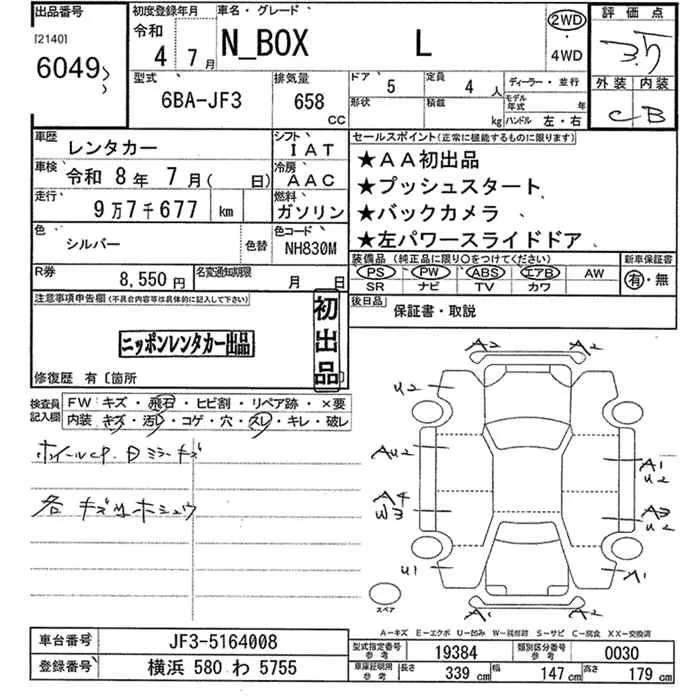 出品番号
[2140]
6049
初度登録年月
令和
4年 7月
車名・グレード
N_BOX L
2WD
・
4WD
評価点
3.5
外装 内装
C B
型式
6BA-JF3
排気量
658
CC
ドア 5
定員 4 人
ディーラー・並行
形状
積載 kg
モデル年式 年
ハンドル 左・右
車歴 レンタカー
シフト IAT
車検 令和 8年 7月( 日)
冷房 AAC
走行 9万7千677 km
燃料 ガソリン
色 シルバー
色替
色コード NH830M
R券 8,550円
名変通知期限 月 日
セールスポイント(正常に機能するものに限ります)
★AA初出品
★プッシュスタート
★バックカメラ
★左パワースライドドア
装備品(純正品に限り〇をつけてください)
新車保証書
PS PW ABS エアB AW
有・無
SR ナビ TV カワ
後日品
保証書・取説
注意事項申告欄(不具合内容等は具体的に記入して下さい)
ニッポンレンタカー出品
初出品
修復歴 有〔箇所
検査員記入欄
FW キズ・飛石・ヒビ割・リペア跡・×要
内装 キズ・汚レ・コゲ・穴・スレ・キレ・破レ
ホイールCP. 日ミラーキズ
各キズ凹ホシュウ
A2 A2
U2
AU2
A1
U2
A4
W3
A3
U2
U1
A1
A2 A2
スペア
A-キズ E-エクボ U-凹み W-補修跡 S-サビ C-腐食 XX-交換済
車台番号 JF3-5164008
登録番号 横浜 580 わ 5755
型式指定番号 参考 19384
類別区分番号 参考 0030
車庫証明用 参考 長さ 339 cm 幅 147 cm 高さ 179 cm